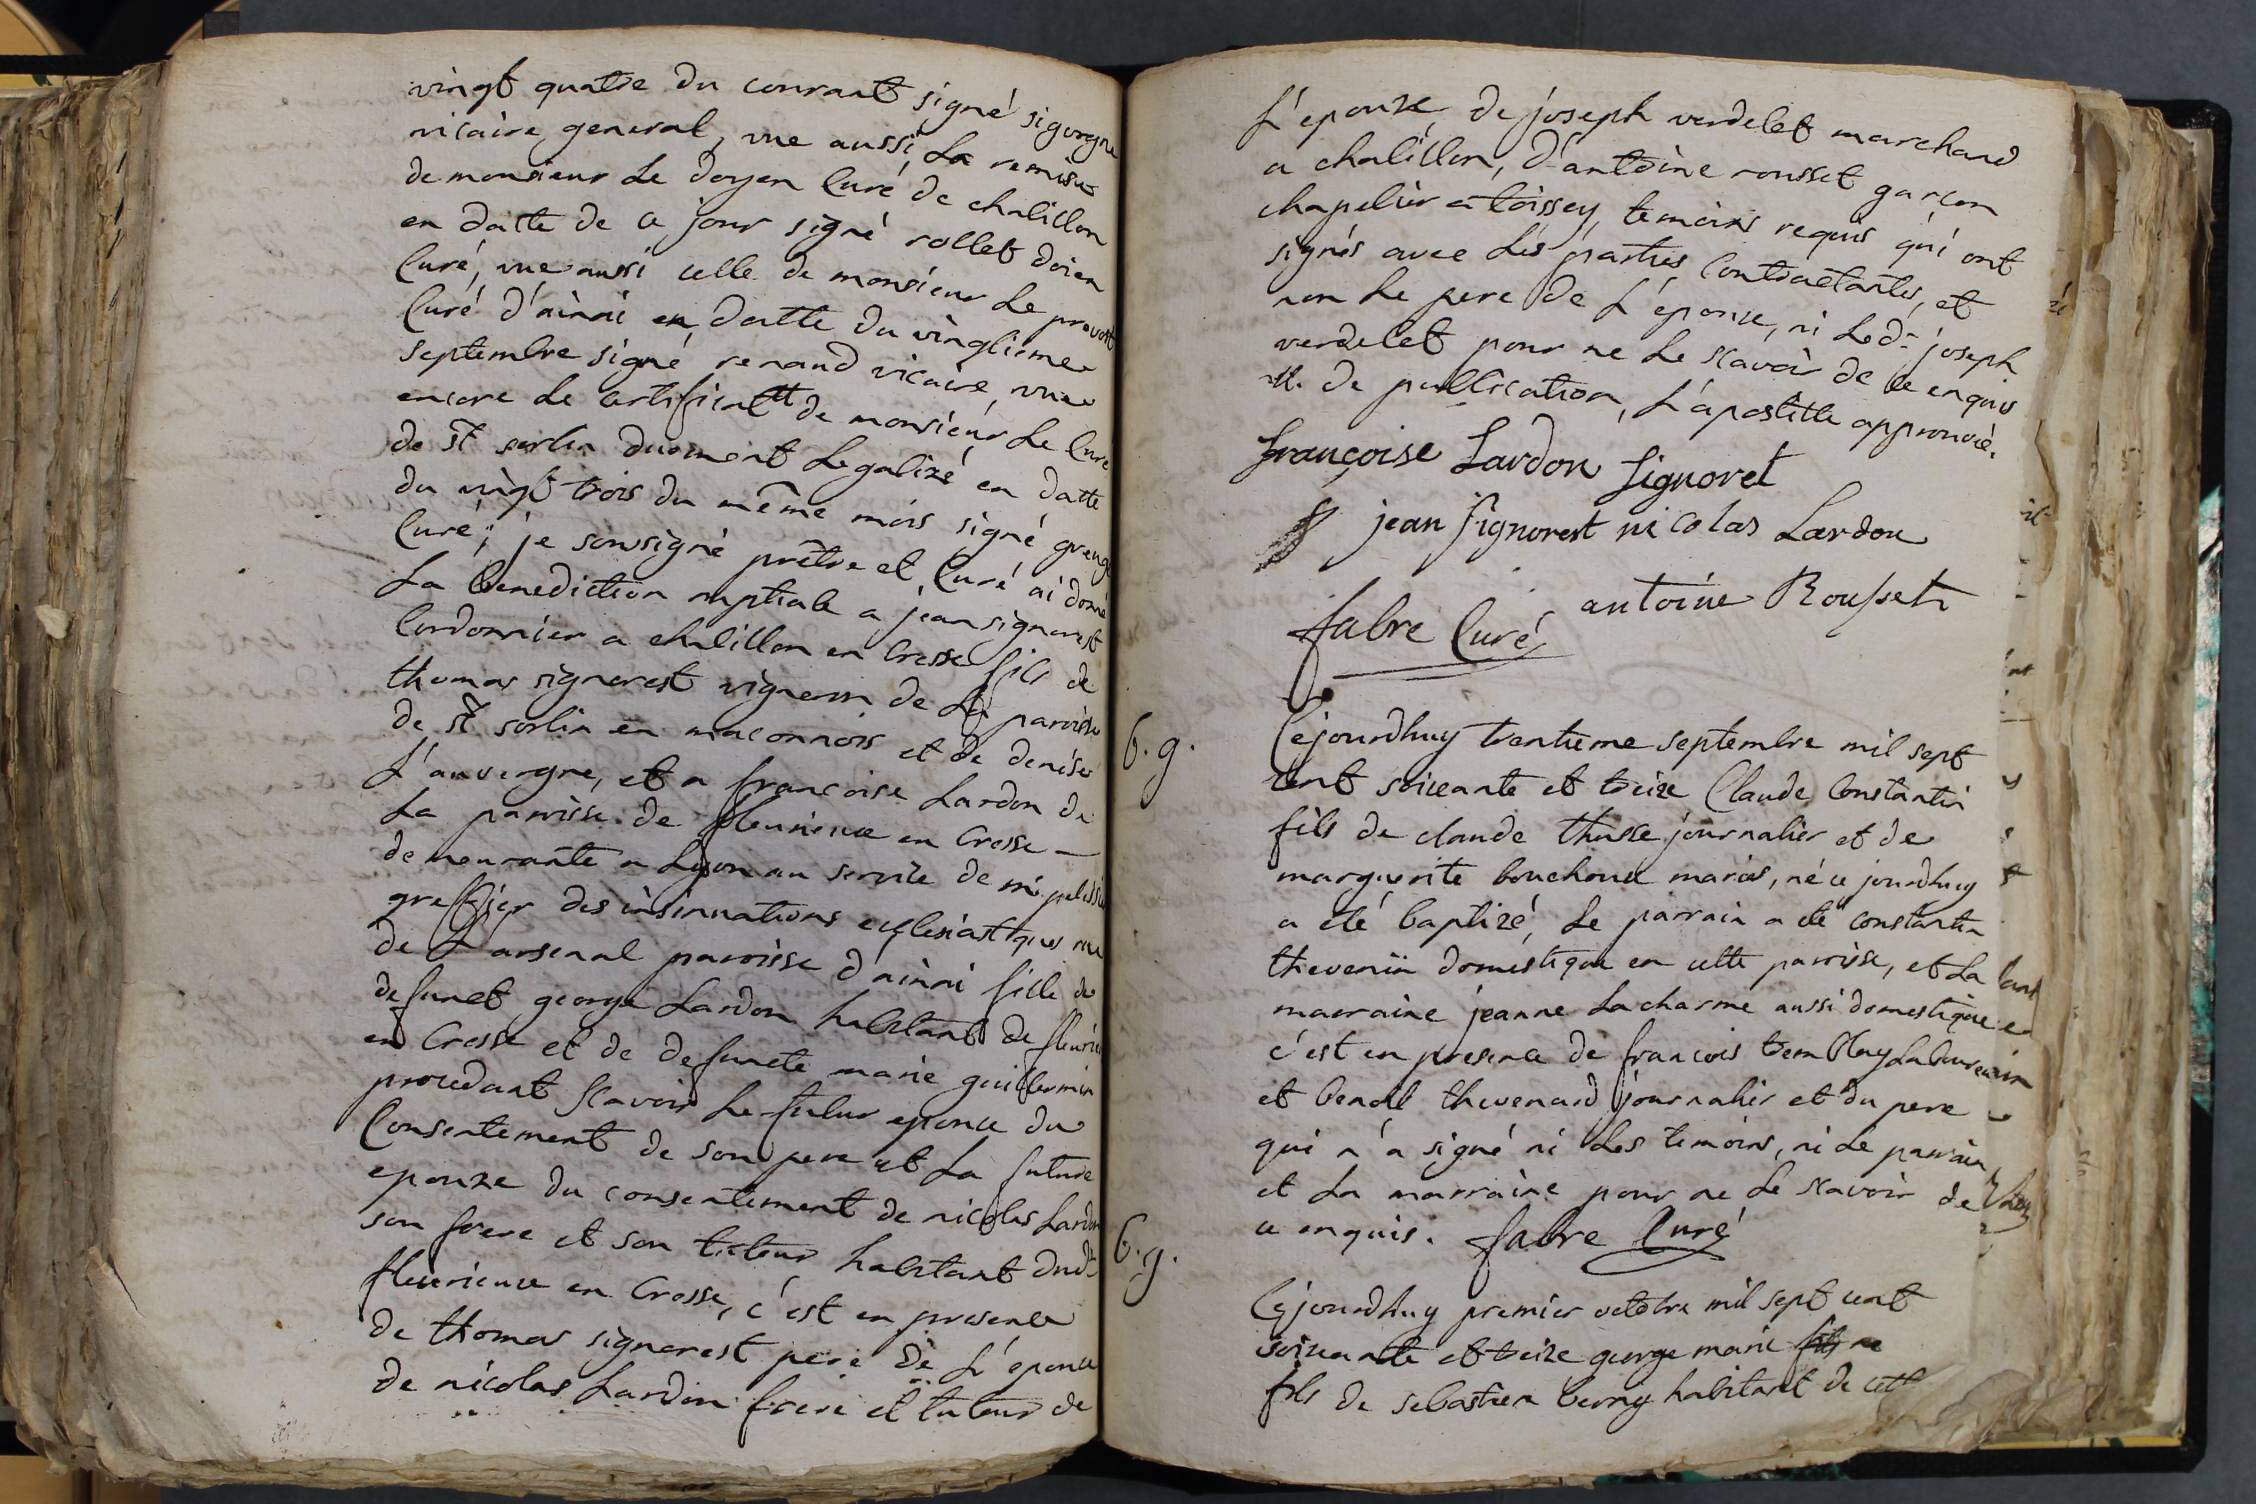 vingt quatre du courant signé sigorgne
vicaire general, vue aussi La remise
de monsieur Le doyen Curé de chatillon
en datte de ce jour signé rollet doien
Curé, vue aussi celle de monsieur Le prevost
Curé d'ainai en datte du vingtieme
septembre signé renaud vicaire, vue
encore Le certificatt de monsieur Le Curé
de st sorlin duement Legalizé en datte
du vingt trois du même mois signé
Curé; je sousigné prêtre et Curé ai donné
La benediction nuptiale a jean signorest
Cordonnier a chatillon en bresse fils de
thomas signorest vigneron de La paroisse
de st sorlin en maconnois et de denise
L'auvergne, et a francoise Lardon de
La paroisse de fleurieux en bresse —
demeurante a Lyon au service de mr
greffier des insinuations ecclesiastiques rue
de L'arsenal paroisse d'ainai fille de
defunct george Lardon habitant de fleurieux
en bresse et de defuncte marie guillermin
procedant scavoir Le futur epoux du
Consentement de son pere et La future
epouze du consentement de nicolas Lardon
son frere et son tuteur habitant dudt
fleurieux en bresse, c'est en presence
de thomas signorest pere de L'epoux
de nicolas Lardon frere et tuteur de
L'epouze de joseph verdelet marchand
a chatillon, d'antoine rousset garcon
chapelier a toissey, temoins requis qui ont
signés avec Les parties Contractantes, et
non Le pere de L'epoux, ni Ledt joseph
verdelet pour ne Le scavoir de ce enquis
de publication, L'apostille approuvée.
françoise Lardon Signoret
jean signorest nicolas Lardon
antoine Rousset
fabre Curé
b. g.
Cejourdhuy trentieme septembre mil sept
cent soixante et treize Claude Constantin
fils de claude thusse journalier et de
marguerite bouchoud mariés, né ce jourdhuy
a eté baptizé, Le parrain a eté constantin
thevenin domestique en cette paroisse, et La
marraine jeanne Lacharme aussi domestique
c'est en presence de francois tremblay Laboureur
et benoit thevenard journalier et du pere
qui n'a signé ni Les temoins, ni Le parrain
et La marraine pour ne Le scavoir de
ce enquis. fabre Curé
b. g.
Cejourdhuy premier octobre mil sept cent
soixante et treize george marie
fils de sebastien berny habitant de cette